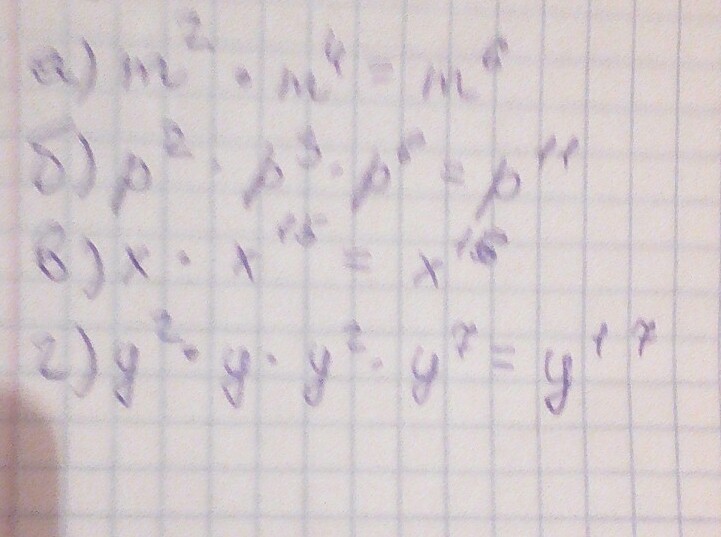 а) m² · m⁴ = m⁶
б) p² · p³ · p⁶ = p¹¹
в) x · x¹⁵ = x¹⁶
г) y² · y · y² · y⁷ = y¹⁷